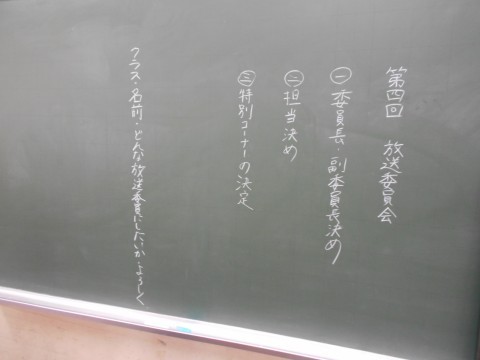 第四回 放送委員会
㊀委員長・副委員長決め
㊁担当決め
㊂特別コーナーの決定
クラス・名前・どんな放送委員にしたいか・よろしく